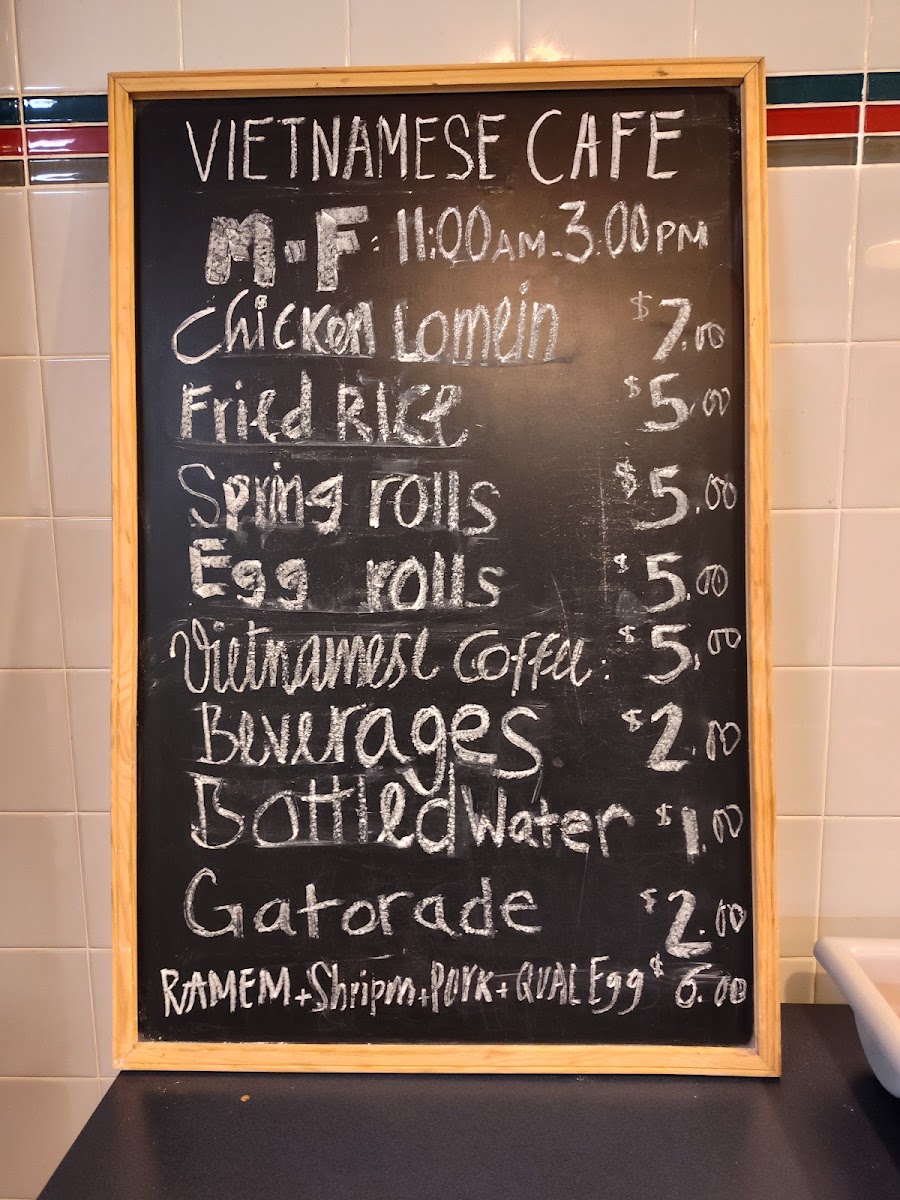 VIETNAMESE CAFE
M-F: 11:00AM-3:00PM
Chicken Lomein $7.00
Fried Rice $5.00
Spring rolls $5.00
Egg rolls $5.00
Vietnamese Coffee: $5.00
Beverages $2.00
Bottled Water $1.00
Gatorade $2.00
RAMEM+Shripm+PORK+QUAL Egg $6.00